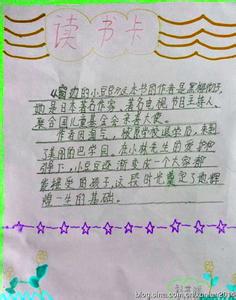 读书卡
《窗边的小豆豆》这本书的作者是黑柳彻子,
她是日本著名作家、著名电视节目主持人、
联合国儿童基金会亲善大使。
作者因淘气,被原学校退学后,来到
了巴学园,在小林先生的爱护和
下,小豆豆逐渐变成一个大家都
能接受的孩子,这段时光奠定了她辉
煌一生的基础。